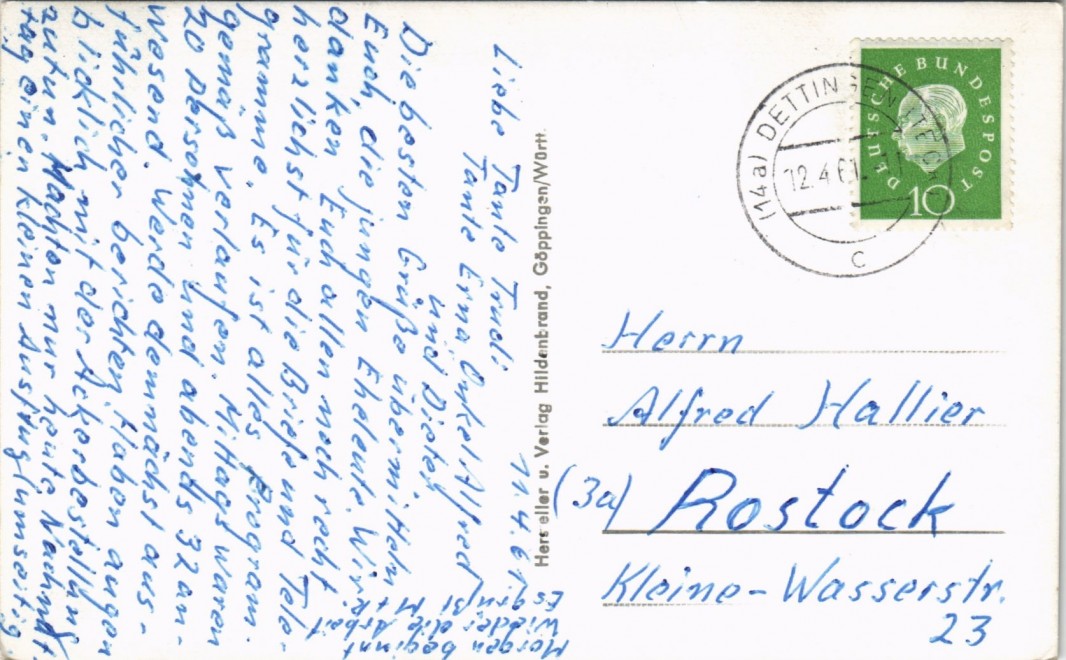 11.4.61
Liebe Tante Trudi
Tante Erna Onkel Alfred
und Dieter
Die besten Grüße übermitteln
Euch die jungen Eheleute. Wir
danken Euch allen noch recht
herzlichst für die Briefe und Tele-
gramme. Es ist alles Program-
gemäß verlaufen. Mittags waren
20 Personen und abends 32 an-
wesend. Werde demnächst aus-
führlicher berichten. Haben augen
blicklich mit der Ackerbestellung
zutun. Machten nur heute Nachmit
tag einen kleinen Ausflug
Morgen beginnt
wieder die Arbeit
Es grüßt
Hersteller u. Verlag Hildenbrand, Göppingen/Württ.
DEUTSCHE BUNDESPOST
10
(14a) DETTINGEN (TECK)
12.4.61
c
Herrn
Alfred Hallier
(3a) Rostock
Kleine-Wasserstr.
23